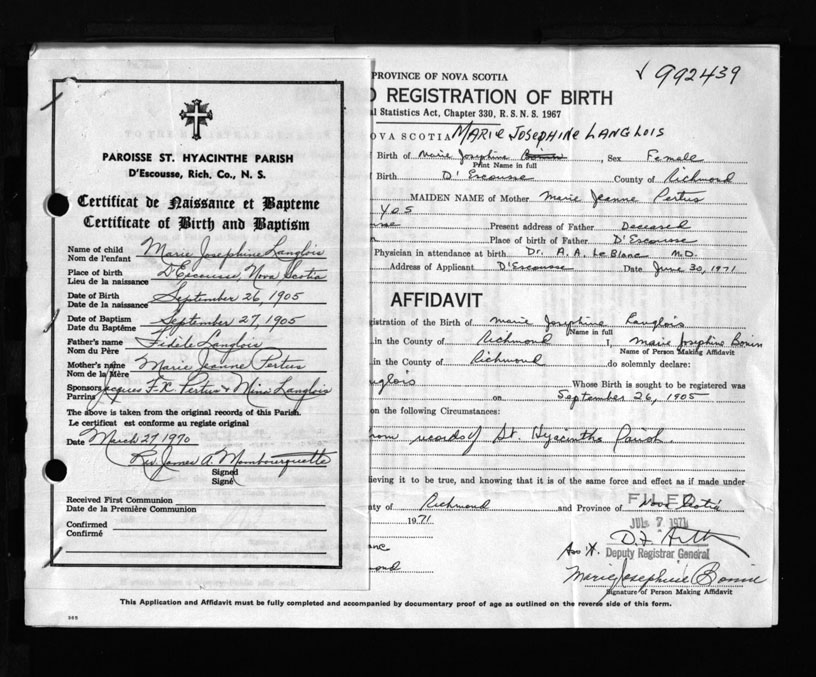 PAROISSE ST. HYACINTHE PARISH
D'Escousse, Rich. Co., N. S.
Certificat de Naissance et Bapteme
Certificate of Birth and Baptism
Name of child Marie Josephine Langlois
Nom de l'enfant
Place of birth D'Escousse, Nova Scotia
Lieu de la naissance
Date of Birth September 26, 1905
Date de la naissance
Date of Baptism September 27, 1905
Date du Baptême
Father's name Fidèle Langlois
Nom du Père
Mother's name Marie Jeanne Pertus
Nom de la Mère
Sponsors Jacques F-X. Pertus & Mina Langlois
Parrins
The above is taken from the original records of this Parish.
Le certificat est conforme au registe original
Date March 27 1970
Rev. James A Mombourquette
Signed
Signé
Received First Communion
Date de la Première Communion
Confirmed
Confirmé
PROVINCE OF NOVA SCOTIA
√ 992439
REGISTRATION OF BIRTH
Statistics Act, Chapter 330, R. S. N. S. 1967
NOVA SCOTIA MARIE JOSEPHINE LANGLOIS
of Birth of Marie Josephine Bonin, Sex Female
Print Name in full
Birth D'Escousse County of Richmond
MAIDEN NAME of Mother Marie Jeanne Pertus
Yes
Present address of Father Deceased
Place of birth of Father D'Escousse
Physician in attendance at birth Dr. A. A. LeBlanc M.D.
Address of Applicant D'Escousse Date June 30, 1971
AFFIDAVIT
gistration of the Birth of Marie Josephine Langlois
Name in full
in the County of Richmond I, Marie Josephine Bonin
Name of Person Making Affidavit
in the County of Richmond do solemnly declare:
nglois Whose Birth is sought to be registered was
on September 26, 1905
on the following Circumstances:
from records of St. Hyacinthe Parish.
lieving it to be true, and knowing that it is of the same force and effect as if made under
ty of Richmond and Province of Nova Scotia
FILED
1971 JUL 7 1971
Deputy Registrar General
Marie Josephine Bonin
Signature of Person Making Affidavit
This Application and Affidavit must be fully completed and accompanied by documentary proof of age as outlined on the reverse side of this form.